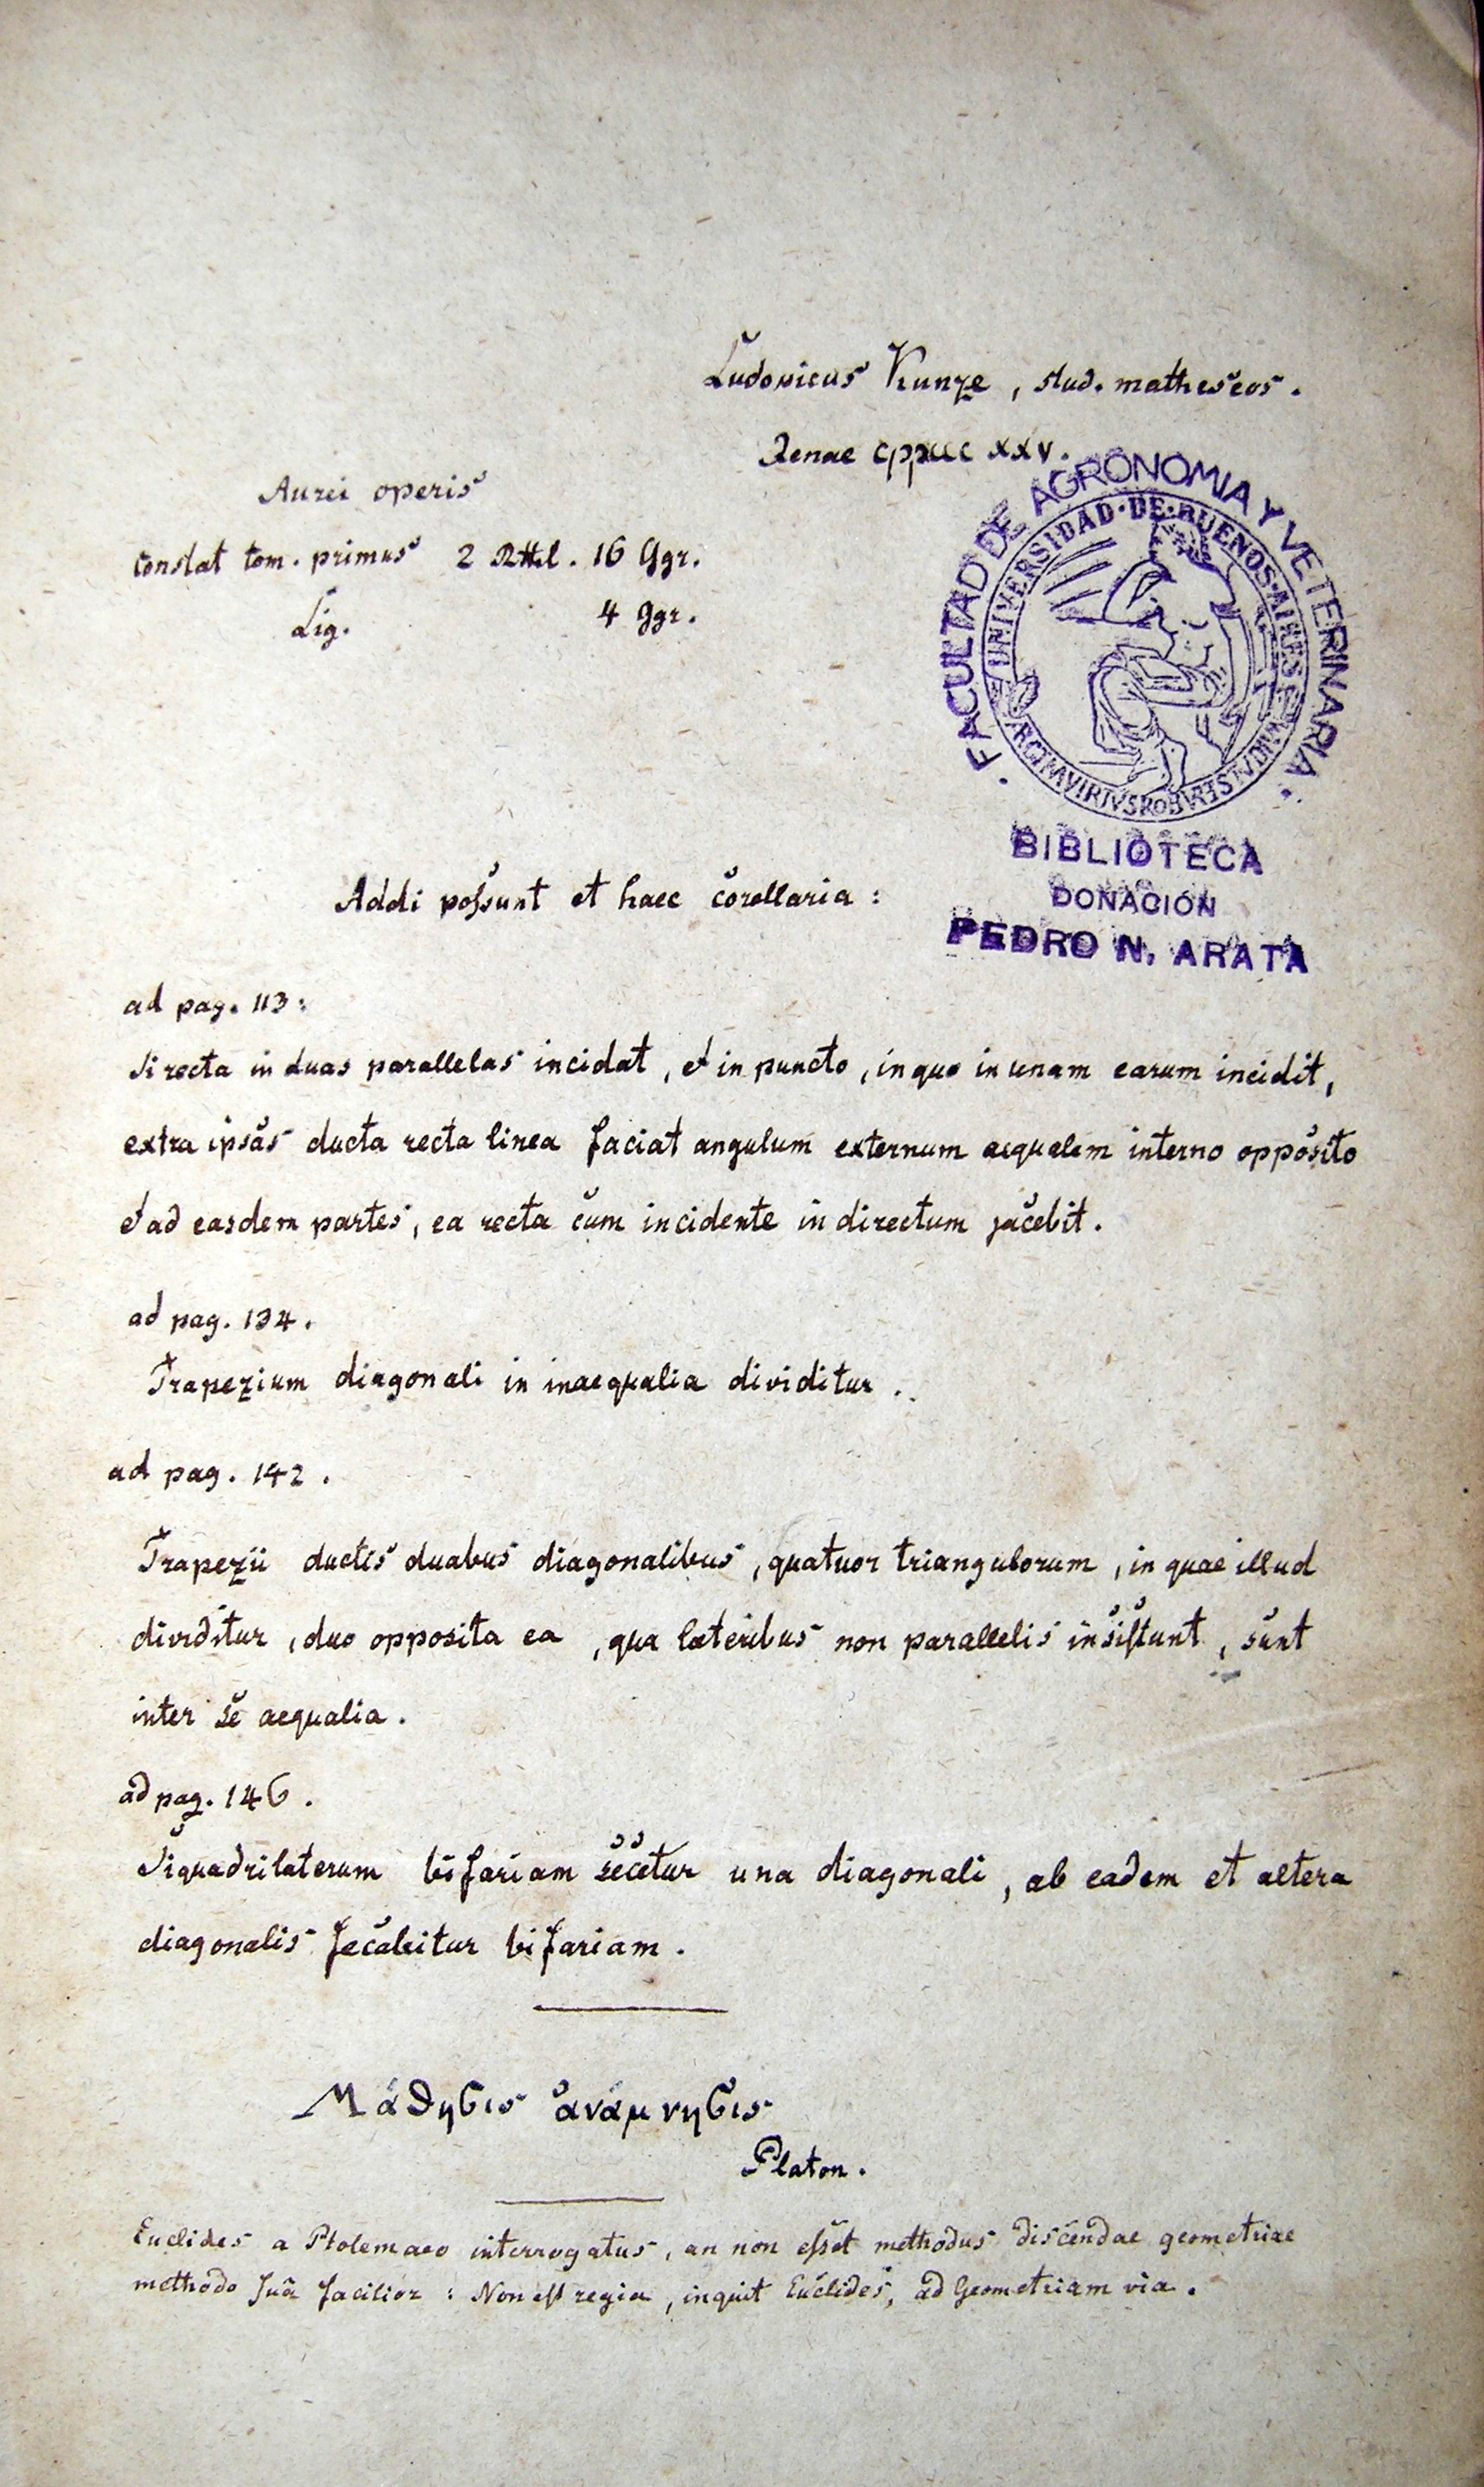 Ludovicus Kunze, stud. matheseos.
Jenae
xxv.
Aurei operis
constat tom. primus 2 Rthl. 16 Ggr.
Lig. 4 Ggr.
FACULTAD DE AGRONOMIA Y VETERINARIA
UNIVERSIDAD·DE·BUENOS·AIRES
BIBLIOTECA
DONACIÓN
PEDRO N. ARATA
Addi poſsunt et haec corollaria :
ad pag. 113:
Si recta in duas parallelas incidat, et in puncto, in quo in unam earum incidit,
extra ipsas ducta recta linea faciat angulum externum aequalem interno opposito
et ad easdem partes, ea recta cum incidente in directum jacebit.
ad pag. 134.
Trapezium diagonali in inaequalia dividitur.
ad pag. 142.
Trapezii ductis duabus diagonalibus, quatuor triangulorum, in quae illud
dividitur, duo opposita ea, qua lateribus non parallelis insiſtunt, sunt
inter se aequalia.
ad pag. 146.
Si quadrilaterum bifariam secetur una diagonali, ab eadem et altera
diagonalis ſecabitur bifariam.
Μάθησις ἀνάμνησις
Platon.
Euclides a Ptolemaeo interrogatus, an non eſset methodus discendae geometriae
methodo ſuâ facilior : Non eſt regia, inquit Euclides, ad Geometriam via.